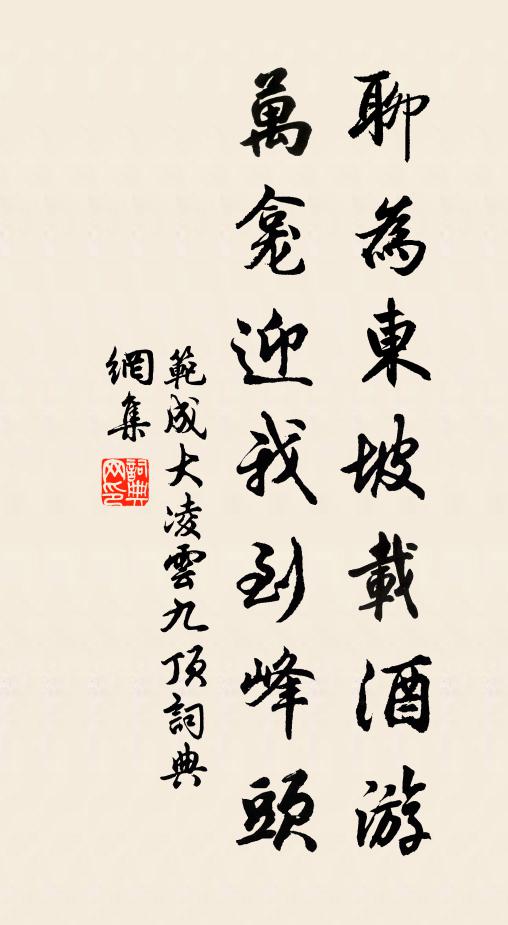 聊為東坡載酒游
萬龕迎我到峰頭
範成大凌雲九頂詞典
網集
詞典网印